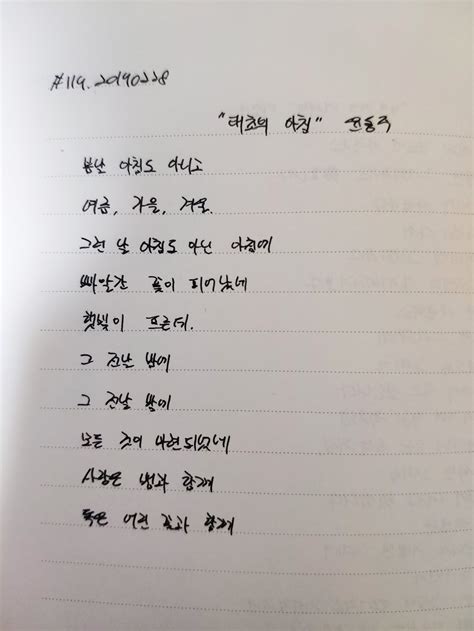 #119. 20190228
"태초의 아침" 윤동주
봄날 아침도 아니고
여름, 가을, 겨울,
그런 날 아침도 아닌 아침에
빠알간 꽃이 피어났네
햇빛이 푸른데,
그 전날 밤에
그 전날 밤에
모든 것이 마련되었네
사랑은 뱀과 함께
독은 어린 꽃과 함께